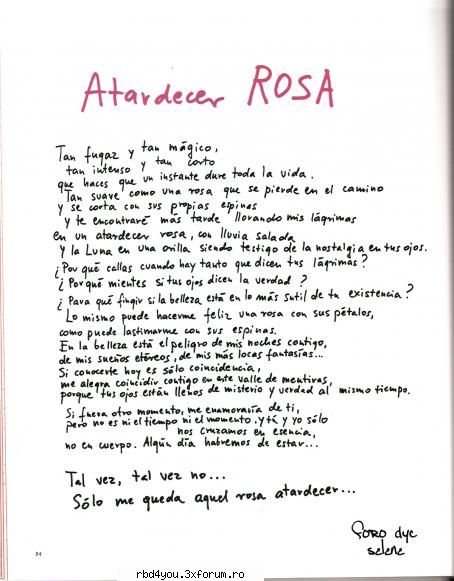 Atardecer ROSA
Tan fugaz y tan mágico,
tan intenso y tan corto
que haces que un instante dure toda la vida.
Tan suave como una rosa que se pierde en el camino
y se corta con sus propias espinas
y te encontraré más tarde llorando mis lágrimas
en un atardecer rosa, con lluvia salada
y la Luna en una orilla siendo testigo de la nostalgia en tus ojos.
¿Por qué callas cuando hay tanto que dicen tus lágrimas?
¿Porqué mientes si tus ojos dicen la verdad?
¿Para qué fingir si la belleza está en lo más sutil de tu existencia?
Lo mismo puede hacerme feliz una rosa con sus pétalos,
como puede lastimarme con sus espinas.
En la belleza está el peligro de mis noches contigo,
de mis sueños etéreos, de mis más locas fantasías...
Si conocerte hoy es sólo coincidencia,
me alegra coincidir contigo en este valle de mentiras,
porque tus ojos están llenos de misterio y verdad al mismo tiempo.
Si fuera otro momento, me enamoraría de ti,
pero no es ni el tiempo ni el momento. y tú y yo sólo
nos cruzamos en esencia,
no en cuerpo. Algún día habremos de estar...
Tal vez, tal vez no...
Sólo me queda aquel rosa atardecer...
dyc
selene
84
rbd4you.3xforum.ro